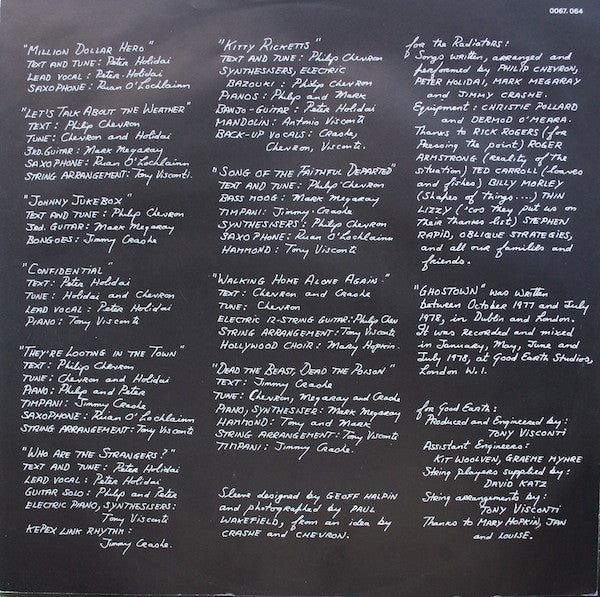 0067.064
"MILLION DOLLAR HERO"
TEXT AND TUNE: Peter Holidai
LEAD VOCAL: Peter Holidai
SAXOPHONE: Ruan O'Lochlainn
"LET'S TALK ABOUT THE WEATHER"
TEXT: Philip Chevron
TUNE: Chevron and Holidai
3RD. GUITAR: Mark Megaray
SAXOPHONE: Ruan O'Lochlainn
STRING ARRANGEMENT: Tony Visconti.
"JOHNNY JUKEBOX"
TEXT AND TUNE: Philip Chevron
3RD. GUITAR: Mark Megaray
BONGOES: Jimmy Crashe
"CONFIDENTIAL"
TEXT: Peter Holidai
TUNE: Holidai and Chevron
LEAD VOCAL: Peter Holidai
PIANO: Tony Visconti
"THEY'RE LOOTING IN THE TOWN"
TEXT: Philip Chevron
TUNE: Chevron and Holidai
PIANO: Philip and Peter
TIMPANI: Jimmy Crashe
SAXOPHONE: Ruan O'Lochlainn
STRING ARRANGEMENT: Tony Visconti
"WHO ARE THE STRANGERS?"
TEXT AND TUNE: Peter Holidai
LEAD VOCAL: Peter Holidai
GUITAR SOLO: Philip and Peter
ELECTRIC PIANO, SYNTHESISERS:
Tony Visconti
KEPEX LINK RHYTHM:
Jimmy Crashe.
"KITTY RICKETTS"
TEXT AND TUNE: Philip Chevron
SYNTHESISERS, ELECTRIC
BAZOUKI: Philip Chevron
PIANOS: Philip and Mark
BANJO-GUITAR: Peter Holidai
MANDOLIN: Antonio Visconti
BACK-UP VOCALS: Crashe,
Chevron, Visconti.
"SONG OF THE FAITHFUL DEPARTED"
TEXT AND TUNE: Philip Chevron
BASS MOOG: Mark Megaray
TIMPANI: Jimmy Crashe
SYNTHESISERS: Philip Chevron
SAXOPHONE: Ruan O'Lochlainn
HAMMOND: Tony Visconti
"WALKING HOME ALONE AGAIN"
TEXT: Chevron and Crashe
TUNE: Chevron
ELECTRIC 12-STRING GUITAR: Philip Chev
STRING ARRANGEMENT: Tony Visconti
HOLLYWOOD CHOIR: Mary Hopkin.
"DEAD THE BEAST, DEAD THE POISON"
TEXT: Jimmy Crashe
TUNE: Chevron, Megaray and Crashe
PIANO, SYNTHESISER: Mark Megaray
HAMMOND: Tony and Mark
STRING ARRANGEMENT: Tony Visconti
TIMPANI: Jimmy Crashe.
Sleeve designed by GEOFF HALPIN
and photographed by PAUL
WAKEFIELD, from an idea by
CRASHE and CHEVRON.
for the Radiators:
Songs written, arranged and
performed by PHILIP CHEVRON,
PETER HOLIDAI, MARK MEGARAY
and JIMMY CRASHE.
Equipment: CHRISTIE POLLARD
and DERMOD O'MEARA.
Thanks to RICK ROGERS (for
pressing the point) ROGER
ARMSTRONG (reality of the
situation) TED CARROLL (loaves
and fishes) BILLY MORLEY
(Shapes of things....) THIN
LIZZY ('cos they put us on
their thanks list) STEPHEN
RAPID, OBLIQUE STRATEGIES,
and all our families and
friends.
"GHOSTOWN" was written
between October 1977 and July
1978, in Dublin and London.
It was recorded and mixed
in January, May, June and
July 1978, at Good Earth Studios,
London W.1.
for Good Earth:
Produced and Engineered by:
TONY VISCONTI
Assistant Engineers:
KIT WOOLVEN, GRAEME MYHRE
String players supplied by:
DAVID KATZ
String arrangements by:
TONY VISCONTI
Thanks to MARY HOPKIN, JAN
and LOUISE.